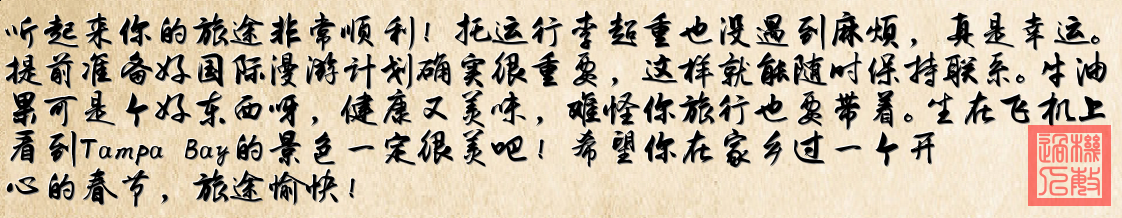 听起来你的旅途非常顺利！托运行李超重也没遇到麻烦，真是幸运。
提前准备好国际漫游计划确实很重要，这样就能随时保持联系。牛油
果可是个好东西呀，健康又美味，难怪你旅行也要带着。坐在飞机上
看到Tampa Bay的景色一定很美吧！希望你在家乡过一个开
心的春节，旅途愉快！